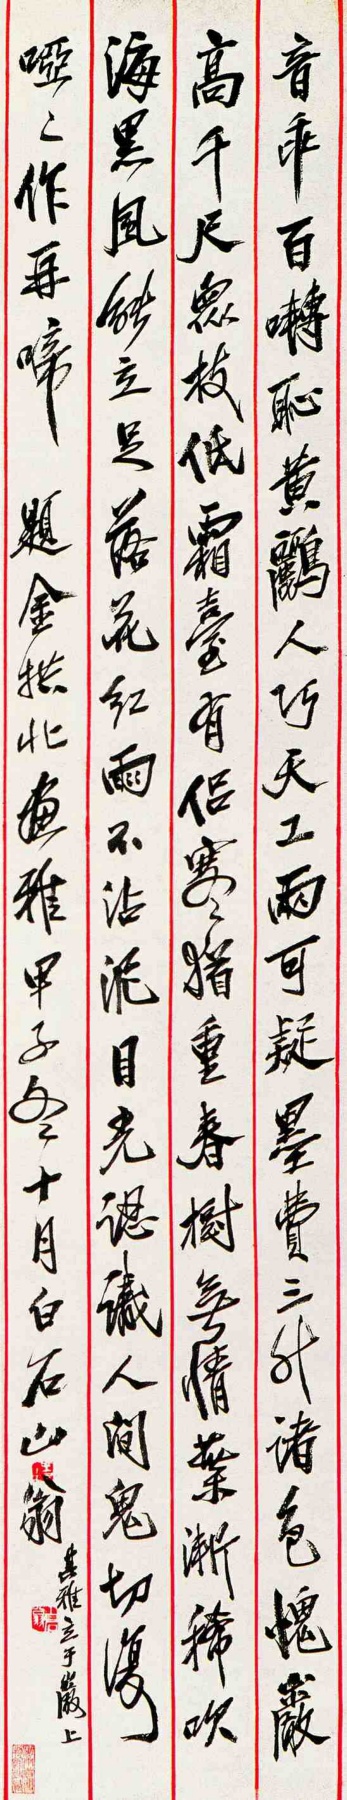 音乖百囀恥黄鸝人巧天工兩可疑墨費三升諸色愧巖
高千尺衆枝低霜臺有侣寒猶重春樹無情葉漸稀吹
海黑風能立足落花紅雨不沾泥目光認識人間鬼切復
啞〻作再啼 題金拱北畫雅甲子冬十月白石山翁
其雅立于巖上